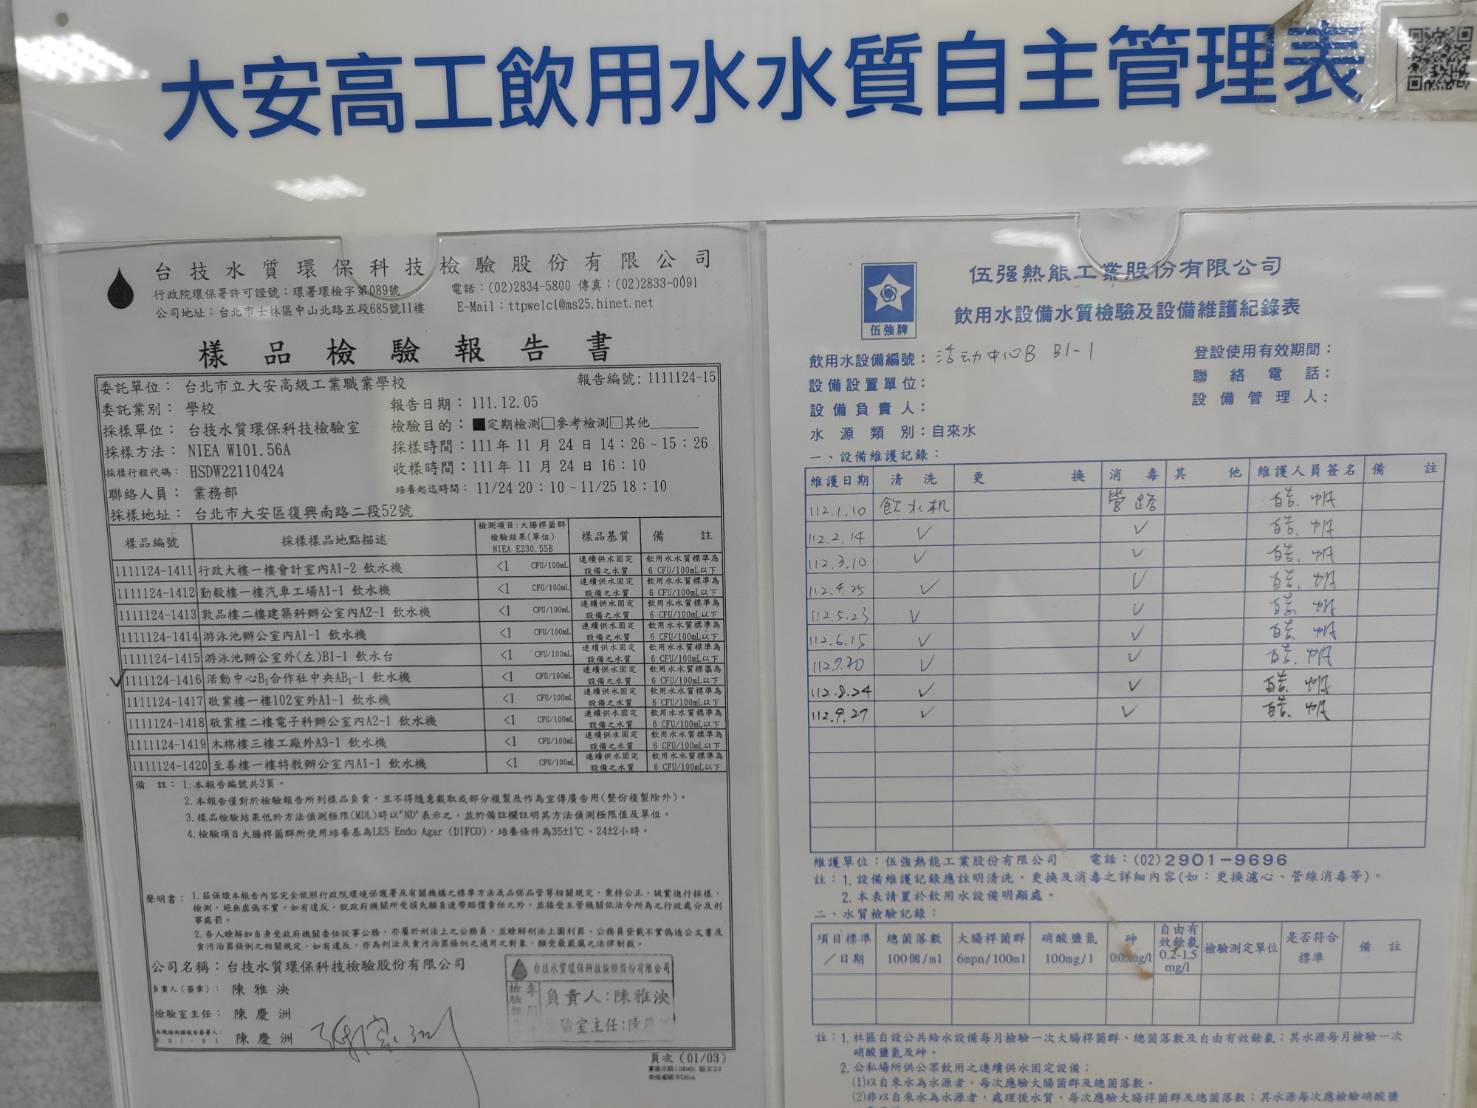 大安高工飲用水水質自主管理表
台技水質環保科技檢驗股份有限公司
行政院環保署許可證號：環署環檢字第089號 電話：(02)2834-5800 傳真：(02)2833-0091
公司地址：台北市士林區中山北路五段685號11樓 E-Mail：ttpwelcl@ms25.hinet.net
樣品檢驗報告書
委託單位： 台北市立大安高級工業職業學校 報告編號：1111124-15
委託業別： 學校 報告日期：111.12.05
採樣單位： 台技水質環保科技檢驗室 檢驗目的：■定期檢測□參考檢測□其他
採樣方法： NIEA W101.56A 採樣時間：111年11月24日14：26~15：26
採樣行程代碼： HSDW22110424 收樣時間：111年11月24日16：10
聯絡人員： 業務部 培養起迄時間： 11/24 20：10~11/25 18：10
採樣地址： 台北市大安區復興南路二段52號
樣品編號 採樣樣品地點描述 檢測項目:大腸桿菌群 檢驗結果(單位) NIEA E230.55B 樣品基質 備註
1111124-1411 行政大樓一樓會計室內A1-2 飲水機 <1 CFU/100mL 連續供水固定設備之水質 飲用水水質標準為6 CFU/100mL以下
1111124-1412 勤毅樓一樓汽車工場A1-1 飲水機 <1 CFU/100mL 連續供水固定設備之水質 飲用水水質標準為6 CFU/100mL以下
1111124-1413 敦品樓二樓建築科辦公室內A2-1 飲水機 <1 CFU/100mL 連續供水固定設備之水質 飲用水水質標準為6 CFU/100mL以下
1111124-1414 游泳池辦公室內A1-1 飲水機 <1 CFU/100mL 連續供水固定設備之水質 飲用水水質標準為6 CFU/100mL以下
1111124-1415 游泳池辦公室外(左)B1-1 飲水台 <1 CFU/100mL 連續供水固定設備之水質 飲用水水質標準為6 CFU/100mL以下
✓ 1111124-1416 活動中心B₁合作社中央AB₁-1 飲水機 <1 CFU/100mL 連續供水固定設備之水質 飲用水水質標準為6 CFU/100mL以下
1111124-1417 敬業樓一樓102室外A1-1 飲水機 <1 CFU/100mL 連續供水固定設備之水質 飲用水水質標準為6 CFU/100mL以下
1111124-1418 敬業樓二樓電子科辦公室內A2-1 飲水機 <1 CFU/100mL 連續供水固定設備之水質 飲用水水質標準為6 CFU/100mL以下
1111124-1419 木棉樓三樓工廠外A3-1 飲水機 <1 CFU/100mL 連續供水固定設備之水質 飲用水水質標準為6 CFU/100mL以下
1111124-1420 至善樓一樓特教辦公室內A1-1 飲水機 <1 CFU/100mL 連續供水固定設備之水質 飲用水水質標準為6 CFU/100mL以下
備 註：1.本報告編號共3頁。
2.本報告僅對於檢驗報告所列樣品負責，且不得隨意截取或部分複製及作為宣傳廣告用(整份複製除外)。
3.樣品檢驗結果低於方法偵測極限(MDL)時以"ND"表示之，並於備註欄註明其方法偵測極限值及單位。
4.檢驗項目大腸桿菌群所使用培養基為LES Endo Agar (DIFCO)，培養條件為35±1℃、24±2小時。
聲明書： 1.茲保證本報告內容完全依照行政院環境保護署及有關機構之標準方法及品保品管等相關規定，秉持公正、誠實進行採樣、
檢測，絕無虛偽不實，如有違反，就政府機關所受損失願負連帶賠償責任之外，並接受主管機關依法令所為之行政處分及刑
事處罰。
2.吾人瞭解如自身受政府機關委任從事公務，亦屬於刑法上之公務員，並瞭解刑法上圖利罪、公務員登載不實偽造公文書及
貪污治罪條例之相關規定，如有違反，亦為刑法及貪污治罪條例之適用之對象，願受最嚴厲之法律制裁。
公司名稱：台技水質環保科技檢驗股份有限公司
負責人(簽章)： 陳雅泱
檢驗室主任： 陳慶洲
陳慶洲
台技水質環保科技檢驗股份有限公司
負責人：陳雅泱
驗室主任：陳慶
頁次 (01/03)
伍強牌
伍強熱能工業股份有限公司
飲用水設備水質檢驗及設備維護紀錄表
飲用水設備編號：活动中心B B1-1 登設使用有效期間：
設備設置單位： 聯絡電話：
設備負責人： 設備管理人：
水源類別：自來水
一、設備維護記錄：
維護日期 清洗 更換 消毒 其他 維護人員簽名 備註
112.1.10 飲水机 管路
112.2.14 ✓ ✓
112.3.10 ✓ ✓
112.4.25 ✓ ✓
112.5.23 ✓ ✓
112.6.15 ✓ ✓
112.7.20 ✓ ✓
112.8.24 ✓ ✓
112.9.27 ✓ ✓
維護單位：伍強熱能工業股份有限公司 電話：(02)2901-9696
註：1.設備維護記錄應註明清洗、更換及消毒之詳細內容(如：更換濾心、管線消毒等)。
2.本表請置於飲用水設備明顯處。
二、水質檢驗記錄：
項目標準／日期 總菌落數 100個/ml 大腸桿菌群 6mpn/100ml 硝酸鹽氮 100mg/l 砷 0.05mg/l 自由有效餘氯 0.2-1.5 mg/l 檢驗測定單位 是否符合標準 備註
註：1.社區自設公共給水設備每月檢驗一次大腸桿菌群、總菌落數及自由有效餘氯；其水源每月檢驗一次
硝酸鹽氮及砷。
2.公私場所供公眾飲用之連續供水固定設備：
(1)以自來水為水源者，每次應驗大腸桿菌群及總菌落數。
(2)非以自來水為水源者，處理後水質，每次應驗大腸桿菌群及總菌落數；其水源每次應檢驗硝酸鹽